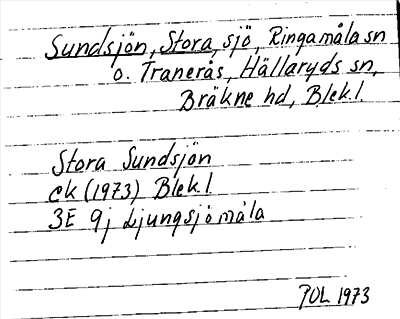 Sundsjön, Stora, sjö, Ringamåla sn
o. Tranerås, Hällaryds sn,
Bräkne hd, Blek l.
Stora Sundsjön
ek (1973) Blek l
3E 9j Ljungsjömåla
POL 1973